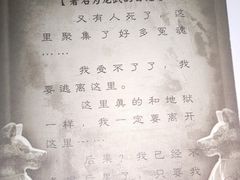 又有人死了，这
里聚集了好多冤魂
……
我受不了了，我
要逃离这里。
这里真的和地狱
一样，我一定要离开
这里……
后果？我已经不
了，只要我